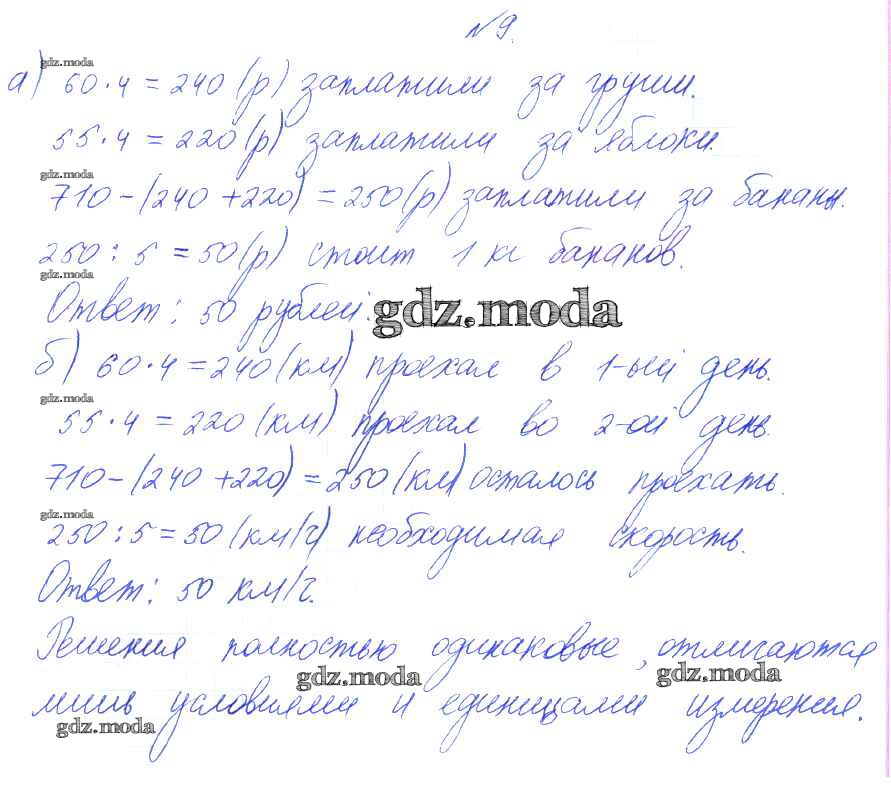 №9.
gdz.moda
а) 60·4 = 240 (р) заплатили за груши.
55·4 = 220 (р) заплатили за яблоки.
gdz.moda
710-(240+220) = 250 (р) заплатили за бананы.
250:5 = 50 (р) стоит 1 кг бананов.
gdz.moda
Ответ: 50 рублей.
gdz.moda
б) 60·4 = 240 (км) проехал в 1-ый день.
gdz.moda
55·4 = 220 (км) проехал во 2-ой день.
710-(240+220) = 250 (км) осталось проехать.
gdz.moda
250:5 = 50 (км/ч) необходимая скорость.
Ответ: 50 км/ч.
Решения полностью одинаковые, отличаются
gdz.moda gdz.moda
лишь условиями и единицами измерения.
gdz.moda